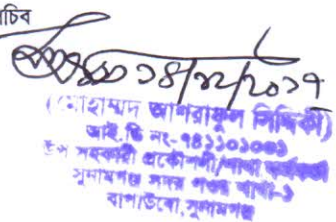 চিব
১৪/১২/২০১৭
(মোহাম্মদ আশরাফুল সিদ্দিকী)
আই,ডি নং- ৭৪১১০১০০১
উপ সহকারী প্রকৌশলী/শাখা কর্মকর্তা
সুনামগঞ্জ সদর পওর শাখা-১
বাপাউবো, সুনামগঞ্জ